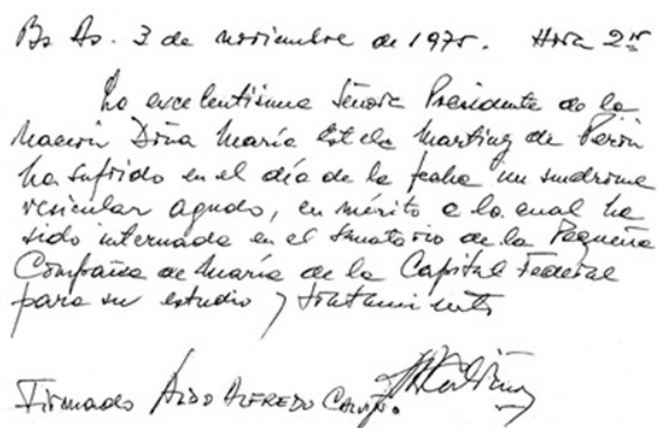 Bs As. 3 de noviembre de 1975. Hora 2
La excelentísima Señora Presidente de la
Nación Doña María Estela Martínez de Perón
ha sufrido en el día de la fecha un síndrome
vesicular agudo, en mérito a lo cual ha
sido internada en el Sanatorio de la Pequeña
Compañía de María de la Capital Federal
para su estudio y tratamiento
Firmado ALDO ALFREDO